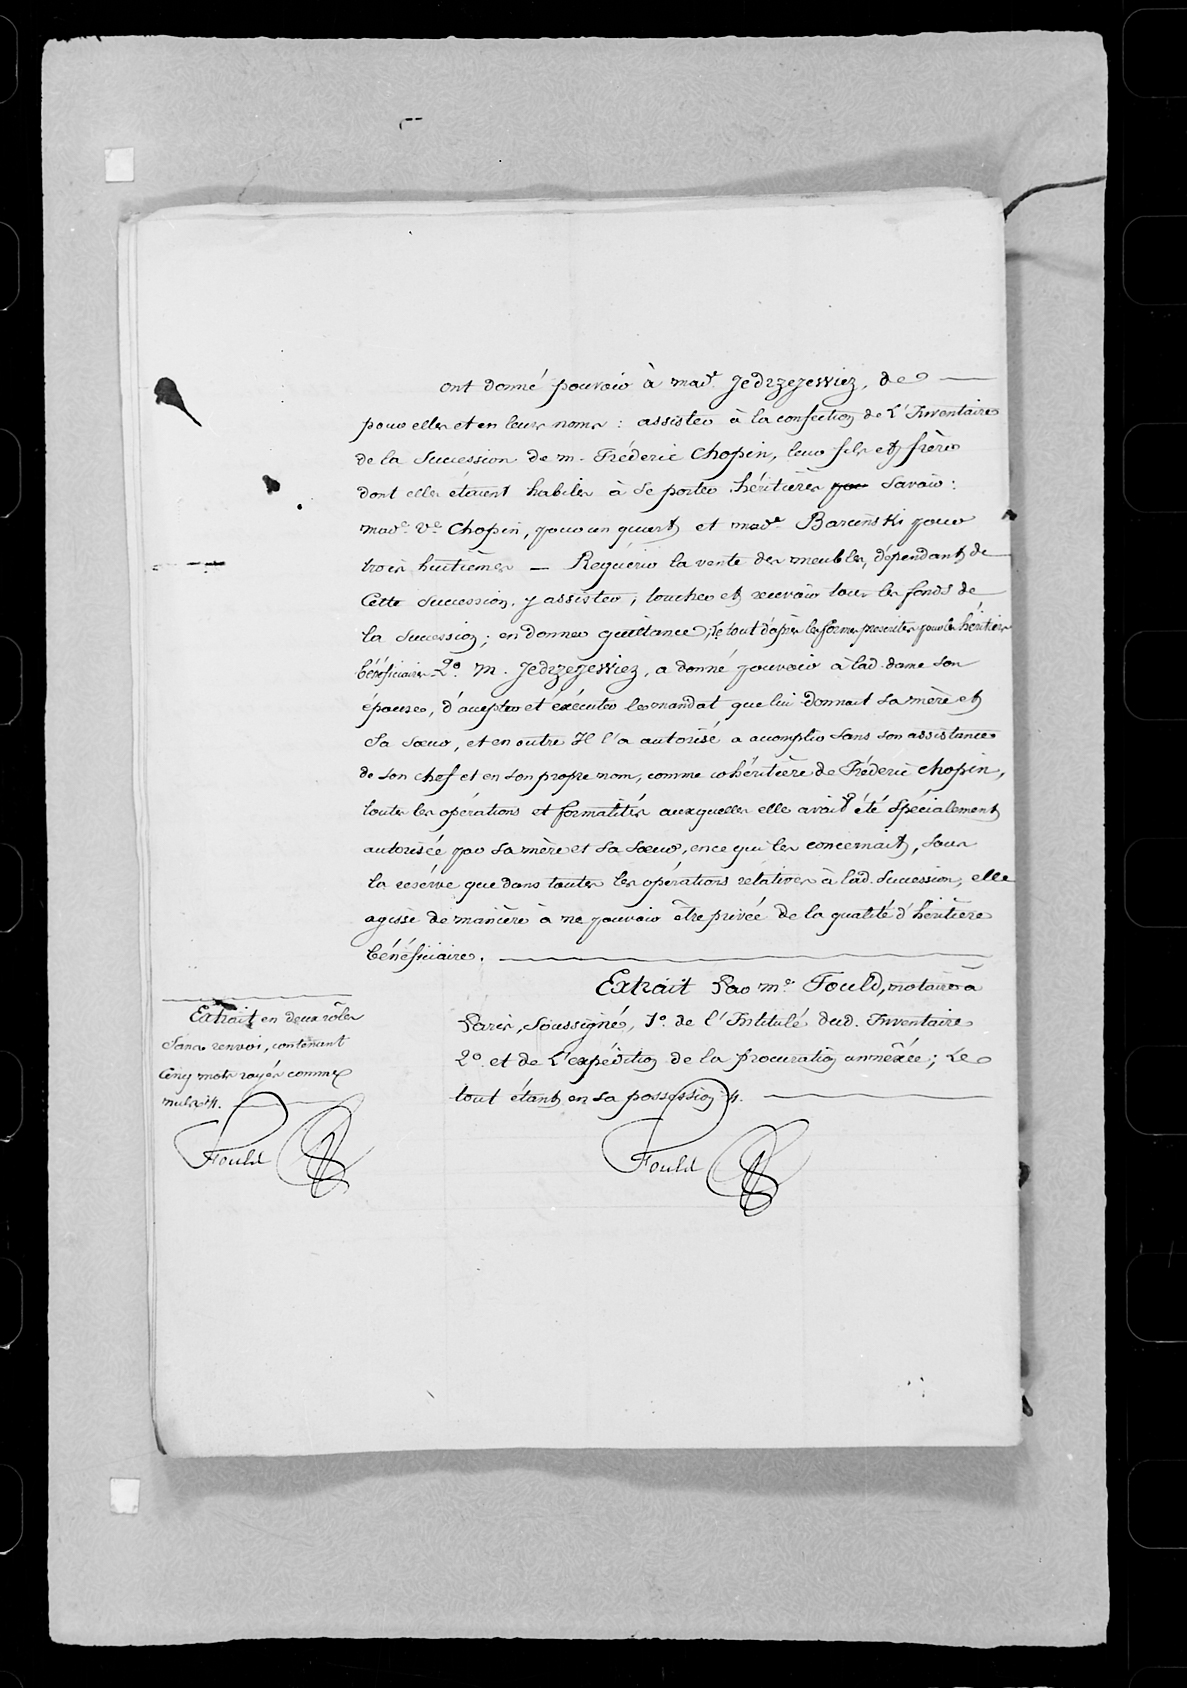 ont donné pouvoir à mad.e Jedrzejewiez, de
pour elles et en leurs noms : assister à la confection de L'Inventaire
de la Succession de m. Fréderic Chopin, leur fils et frère
dont elles étaient habiles à se porter héritières pour Savoir :
mad.e v.e Chopin, pour un quart, et mad.e Barcinski pour
trois huitièmes — Requérir la vente des meubles, dépendant de
cette Succession, y assister, toucher et recevoir tous les fonds de
la Succession ; en donner quittance ; le tout d'après les formes prescrites pour les héritiers
bénéficiaires 2.o M. Jedrzejewiez, a donné pouvoir à lad. dame son
épouse, d'accepter et exécuter le mandat que lui donnait sa mère et
sa sœur, et en outre Il l'a autorisé a accomplir sans son assistance
de son chef et en son propre nom, comme cohéritière de Fréderic Chopin,
toutes les opérations et formalités auxquelles elle avait été spécialement
autorisée par sa mère et sa sœur, en ce qui les concernait, sous
la reserve que dans toutes les opérations relatives à lad. Succession, elle
agisse de manière à ne pouvoir être privée de la qualité d'héritière
bénéficiaire.
Extrait Par m.e Fould, notaire à
Paris, soussigné, 1.o de l'Intitulé dud. Inventaire
2.o et de L'expédition de la procuration annéxée ; Le
tout étant en sa possession ./.
Fould
Extrait en deux rôles
sans renvoi, contenant
cinq mots rayés comme
nuls ./.
Fould